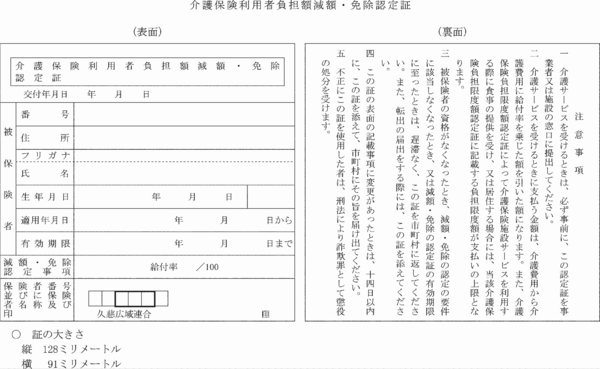 介護保険利用者負担額減額・免除認定証
(表面)
介護保険利用者負担額減額・免除
認定証
交付年月日　　年　　月　　日
被保険者
番号
住所
フリガナ
氏名
生年月日　　年　　月　　日
適用年月日　　年　　月　　日から
有効期限　　年　　月　　日まで
減額・免除
認定事項
給付率　　/100
保険者番号
並びに保険
者名称及び
印
久慈広域連合
印
(裏面)
注意事項
一　介護サービスを受けるときは、必ず事前に、この認定証を事
業者又は施設の窓口に提出してください。
二　介護サービスを受けるときに支払う金額は、介護費用から介
護費用に給付率を乗じた額を引いた額になります。また、介護
保険負担限度額認定証によって介護保険施設サービスを利用す
る際に食事の提供を受け、又は居住する場合には、当該介護保
険負担限度額認定証に記載する負担限度額が支払いの上限とな
ります。
三　被保険者の資格がなくなったとき、減額・免除の認定の要件
に該当しなくなったとき、又は減額・免除の認定証の有効期限
に至ったときは、遅滞なく、この証を市町村に返してくださ
い。また、転出の届出をする際には、この証を添えてくださ
い。
四　この証の表面の記載事項に変更があったときは、十四日以内
に、この証を添えて、市町村にその旨を届け出てください。
五　不正にこの証を使用した者は、刑法により詐欺罪として懲役
の処分を受けます。
○　証の大きさ
縦　128ミリメートル
横　91ミリメートル